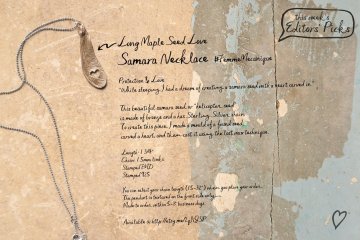 This week's
Editors Picks
Lung Maple Seed Love
Samara Necklace #FemmaMecanique
Protection & Love
"While sleeping, I had a dream of creating a samara seed with a heart carved in."
This beautiful samara seed, or "helicopter seed"
is made of bronze and a has Sterling Silver chain.
To create this piece, I made a mould of a found seed,
carved a heart, and then cast it using the lost wax technique.
Length: 1 3/8"
Chain: 1.5mm links
Stamped
Stamped 925
You can select your chain length (15-32") when you place your order.
The pendant is textured on the front side only.
Made to order within 5-8 business days.
Available @